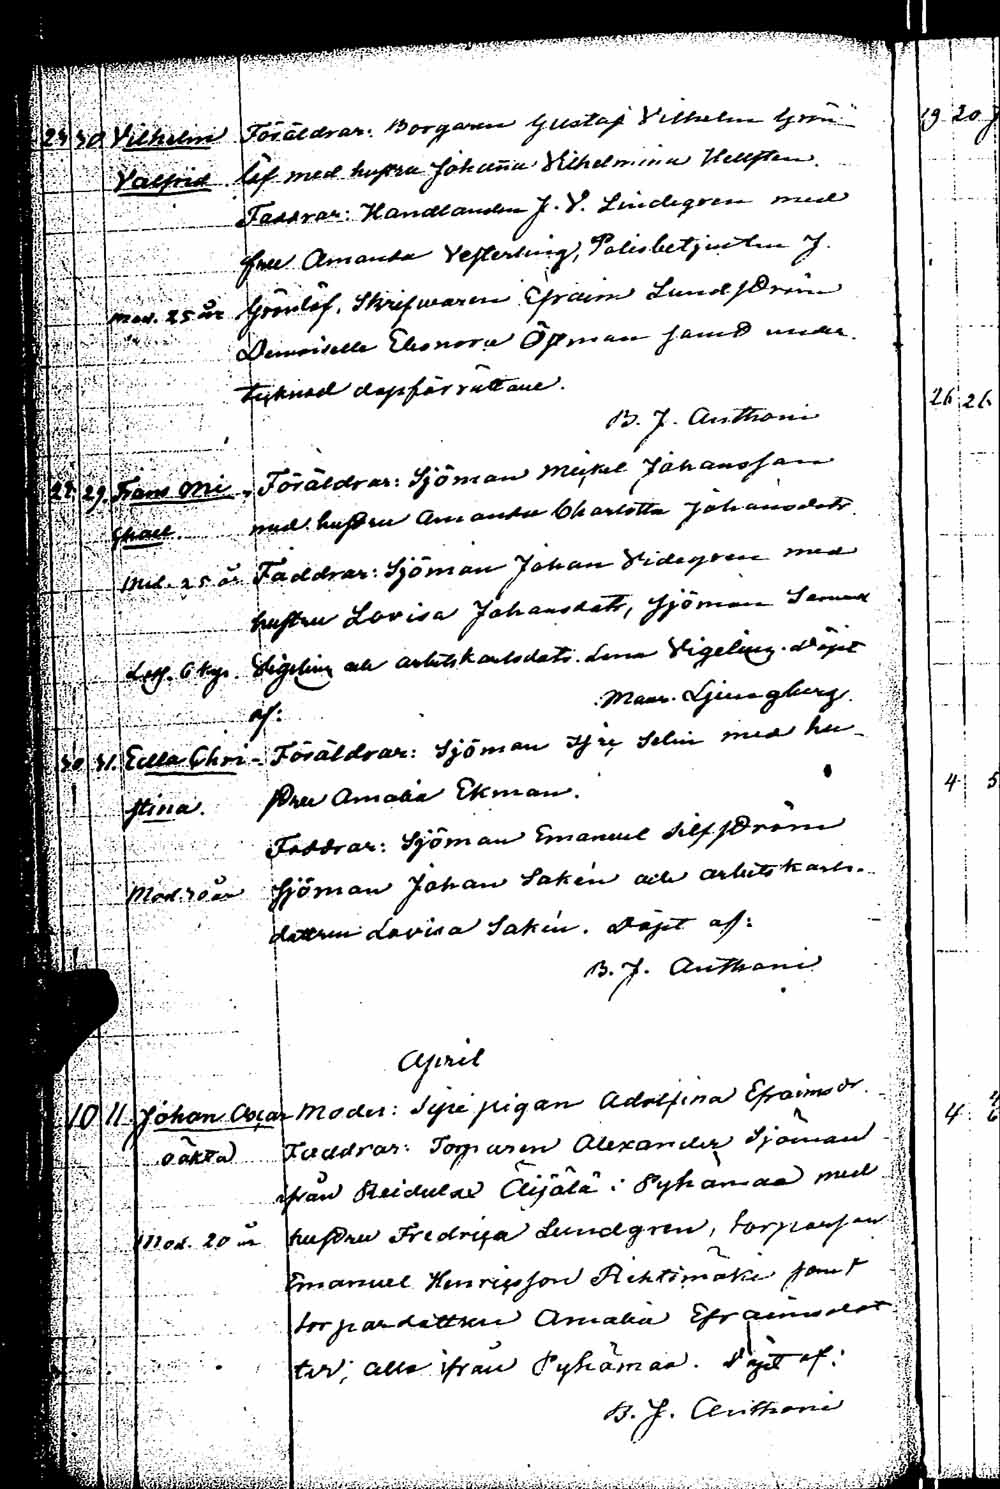 29 30 Vilhelm Föräldrar: Borgaren Gustaf Vilhelm Grön-
Valfrid löf med hustru Johanna Vilhelmina Hellsten.
Faddrar: Handlanden J. V. Lindegren med
fru Amanda Vesterling, Polisbetjenten J.
Mod. 25 år Grönlöf, Skrifvaren Efraim Lundström
Demoiselle Eleonora Öhman samt under
tecknad dopförrättare.
B. J. Anthoni
29. Frans Mi- Föräldrar: Sjöman Mickel Johansson
chael. med hustru Amanda Charlotta Johansdotr
Mod. 25 år Faddrar: Sjöman Johan Videgren med
hustru Lovisa Johansdotr, Sjöman Samuel
Vigeling och arbetskarlsdotr. Lena Vigeling. Döpt
af: Maur. Ljungberg.
30 31. Edla Chri- Föräldrar: Sjöman Selin med hu-
stina. stru Amalia Ekman.
Faddrar: Sjöman Emanuel Silfström
Mod. 30 år Sjöman Johan Sakén och arbetskarls-
dottren Lovisa Sakén. Döpt af:
B. J. Anthoni
April
10 11. Johan Oscar Moder: pigan Adolfina Efraimsdr.
oäkta Faddrar: Torparen Alexander Sjöman
ifrån Äijälä i Pyhämaa med
Mod. 20 år hustru Fredrica Lundgren, torparson
Emanuel Henricsson Rihtimäki samt
torparedottren Amalia Efraimsdot
ter, alla ifrån Pyhämaa. Döpt af:
B. J. Anthoni
19 20
26 26
4 5
4 6